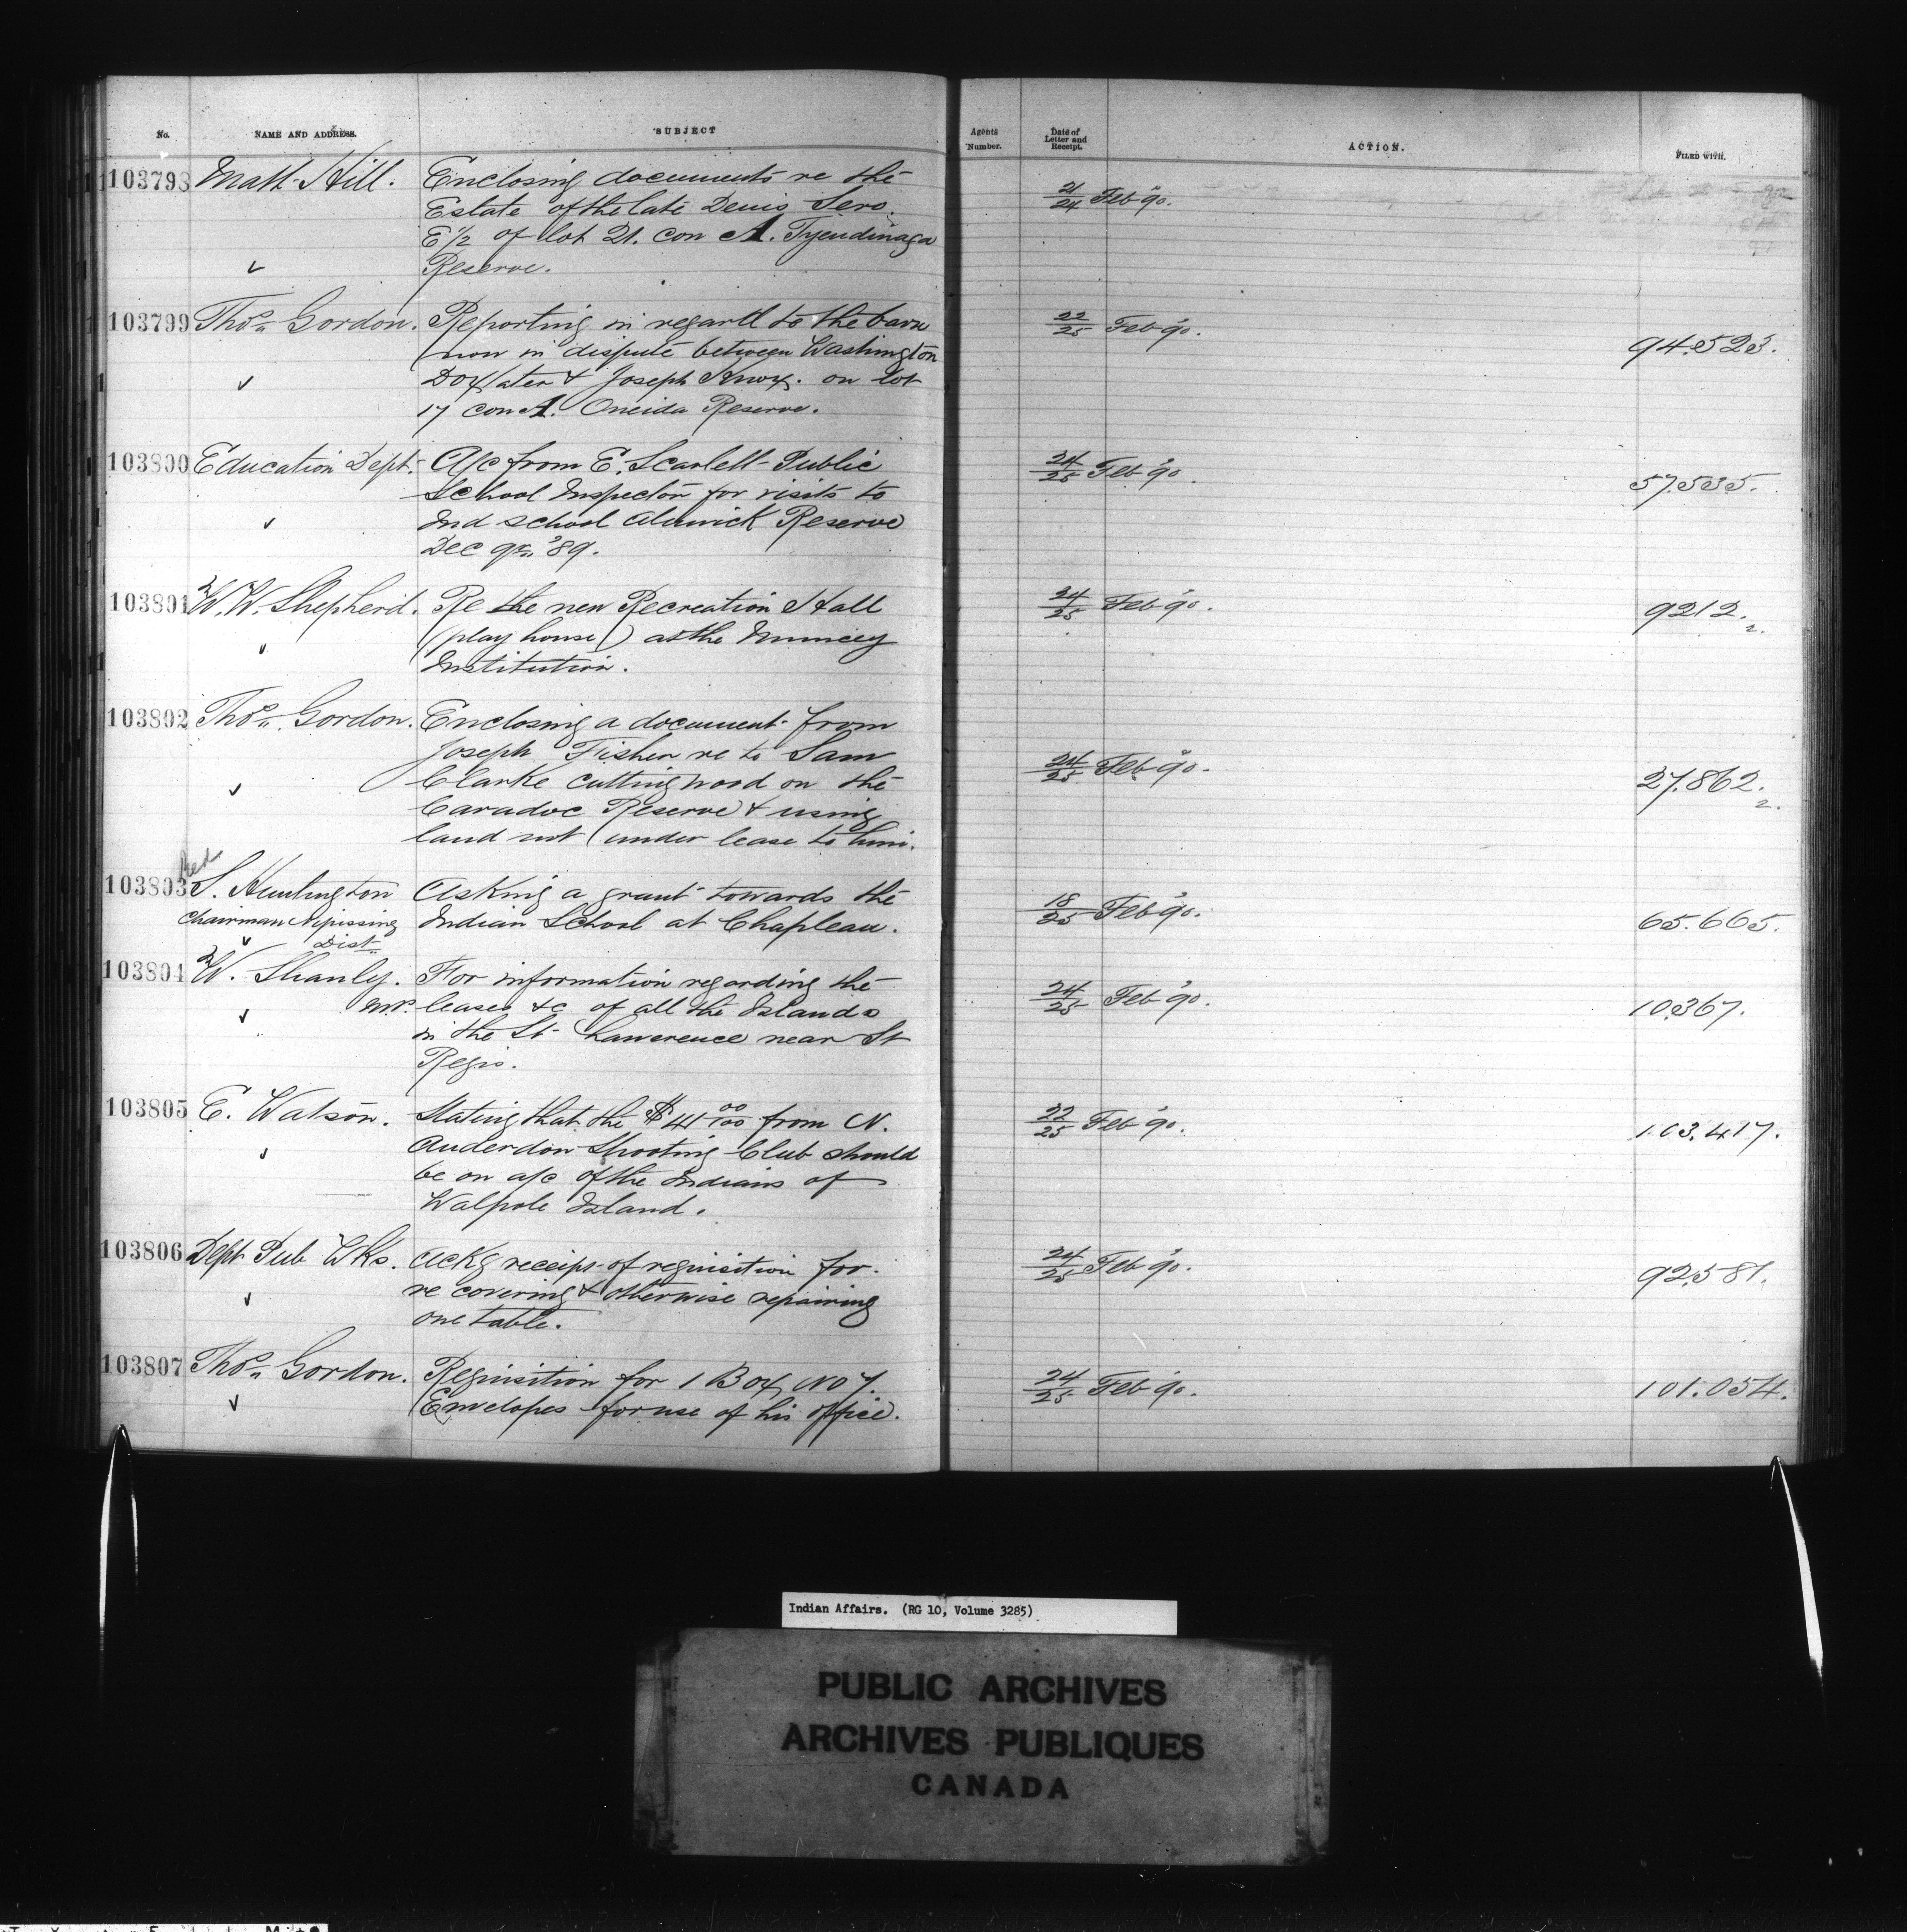 No. NAME AND ADDRESS. SUBJECT Agents Number. Date of Letter and Receipt. ACTION. FILED WITH.
103798 Matt Hill. Enclosing documents re the 21/24 Feb '90.
Estate of the late Denis Sero.
E 1/2 of lot 21. con A. Tyendinaga
Reserve.
103799 Thos. Gordon. Reporting in regard to the barn 22/25 Feb '90. 94.523.
now in dispute between Washington
Doxtater & Joseph Knox. on lot
17 con A. Oneida Reserve.
103800 Education Dept. A/c from E. Scarlett Public 24/25 Feb '90. 57.535.
School Inspector for visits to
Ind School Alnwick Reserve
Dec qr. '89.
103801 W. W. Shepherd. Re the new Recreation Hall 24/25 Feb '90. 9212. 2.
(play house) at the Muncey
Institution.
103802 Thos. Gordon. Enclosing a document from
Joseph Fisher re to Sam 24/25 Feb '90. 27.862. 2.
Clarke cutting wood on the
Caradoc Reserve & using
land not under lease to him.
Red
103803 S. Huntington Asking a grant towards the 18/25 Feb '90. 65.665.
Chairman Nipissing Indian School at Chapleau.
Dist
103804 W. Shanly. For information regarding the 24/25 Feb '90. 10367.
M.P. leases &c of all the Islands
in the St Lawerence near St
Regis.
103805 E. Watson. Stating that the $41 00/100 from N. 22/25 Feb '90. 103.417.
Anderdon Shooting Club should
be on a/c of the Indians of
Walpole Island.
103806 Dept Pub Wks. Ackg receipt of requisition for 24/25 Feb '90. 92.581.
re covering & otherwise repairing
one table.
103807 Thos. Gordon. Requisition for 1 Box No 7. 24/25 Feb '90. 101.054.
Envelopes for use of his office.
Indian Affairs. (RG 10, Volume 3285)
PUBLIC ARCHIVES
ARCHIVES PUBLIQUES
CANADA